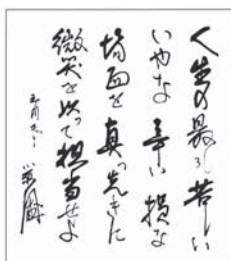 人生の最も苦しい
いやな 辛い 損な
場面を 真っ先きに
微笑を以って担当せよ